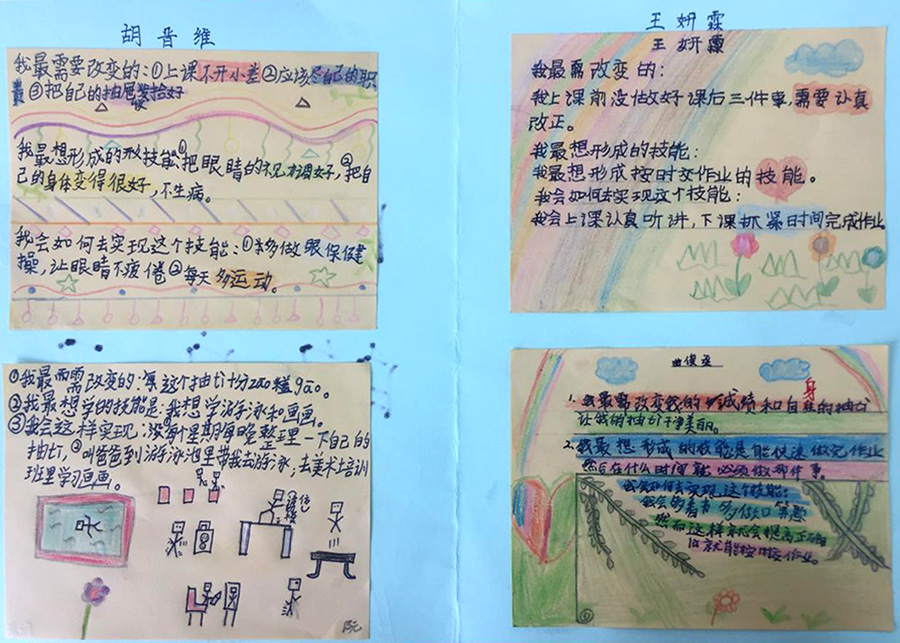 胡晋维
我最需要改变的:①上课不开小差②应该尽自己的职
责③把自己的抽屉装拾好
我最想形成的技能:①把眼睛的视力调好,②把自
己的身体变得很好,不生病。
我会如何去实现这个技能:①多做眼保健
操,让眼睛不疲倦②每天多运动。
王妍霖
王妍霖
我最需改变的:
我上课前没做好课后三件事,需要认真
改正。
我最想形成的技能:
我最想形成按时交作业的技能。
我会如何去实现这个技能:
我会上课认真听讲,下课抓紧时间完成作业
①我最需改变的:这个抽
②我最想学的技能是:我想学游泳和画画。
③我会这样实现:①每个星期每晚整理一下自己的
抽,②叫爸爸到游泳池里带我去游泳,去美术培训
班里学习画画。
阮
俊丞
1.我最需改变我的成绩和自身的抽
让我的抽干净美丽。
2.我最想形成的技能是能快速做完作业
然后在什么时间就必须做那件事。
我会如何去实现这个技能:
我会多看书多做口算题
然而这样就会提高正确
就能按时交作业。